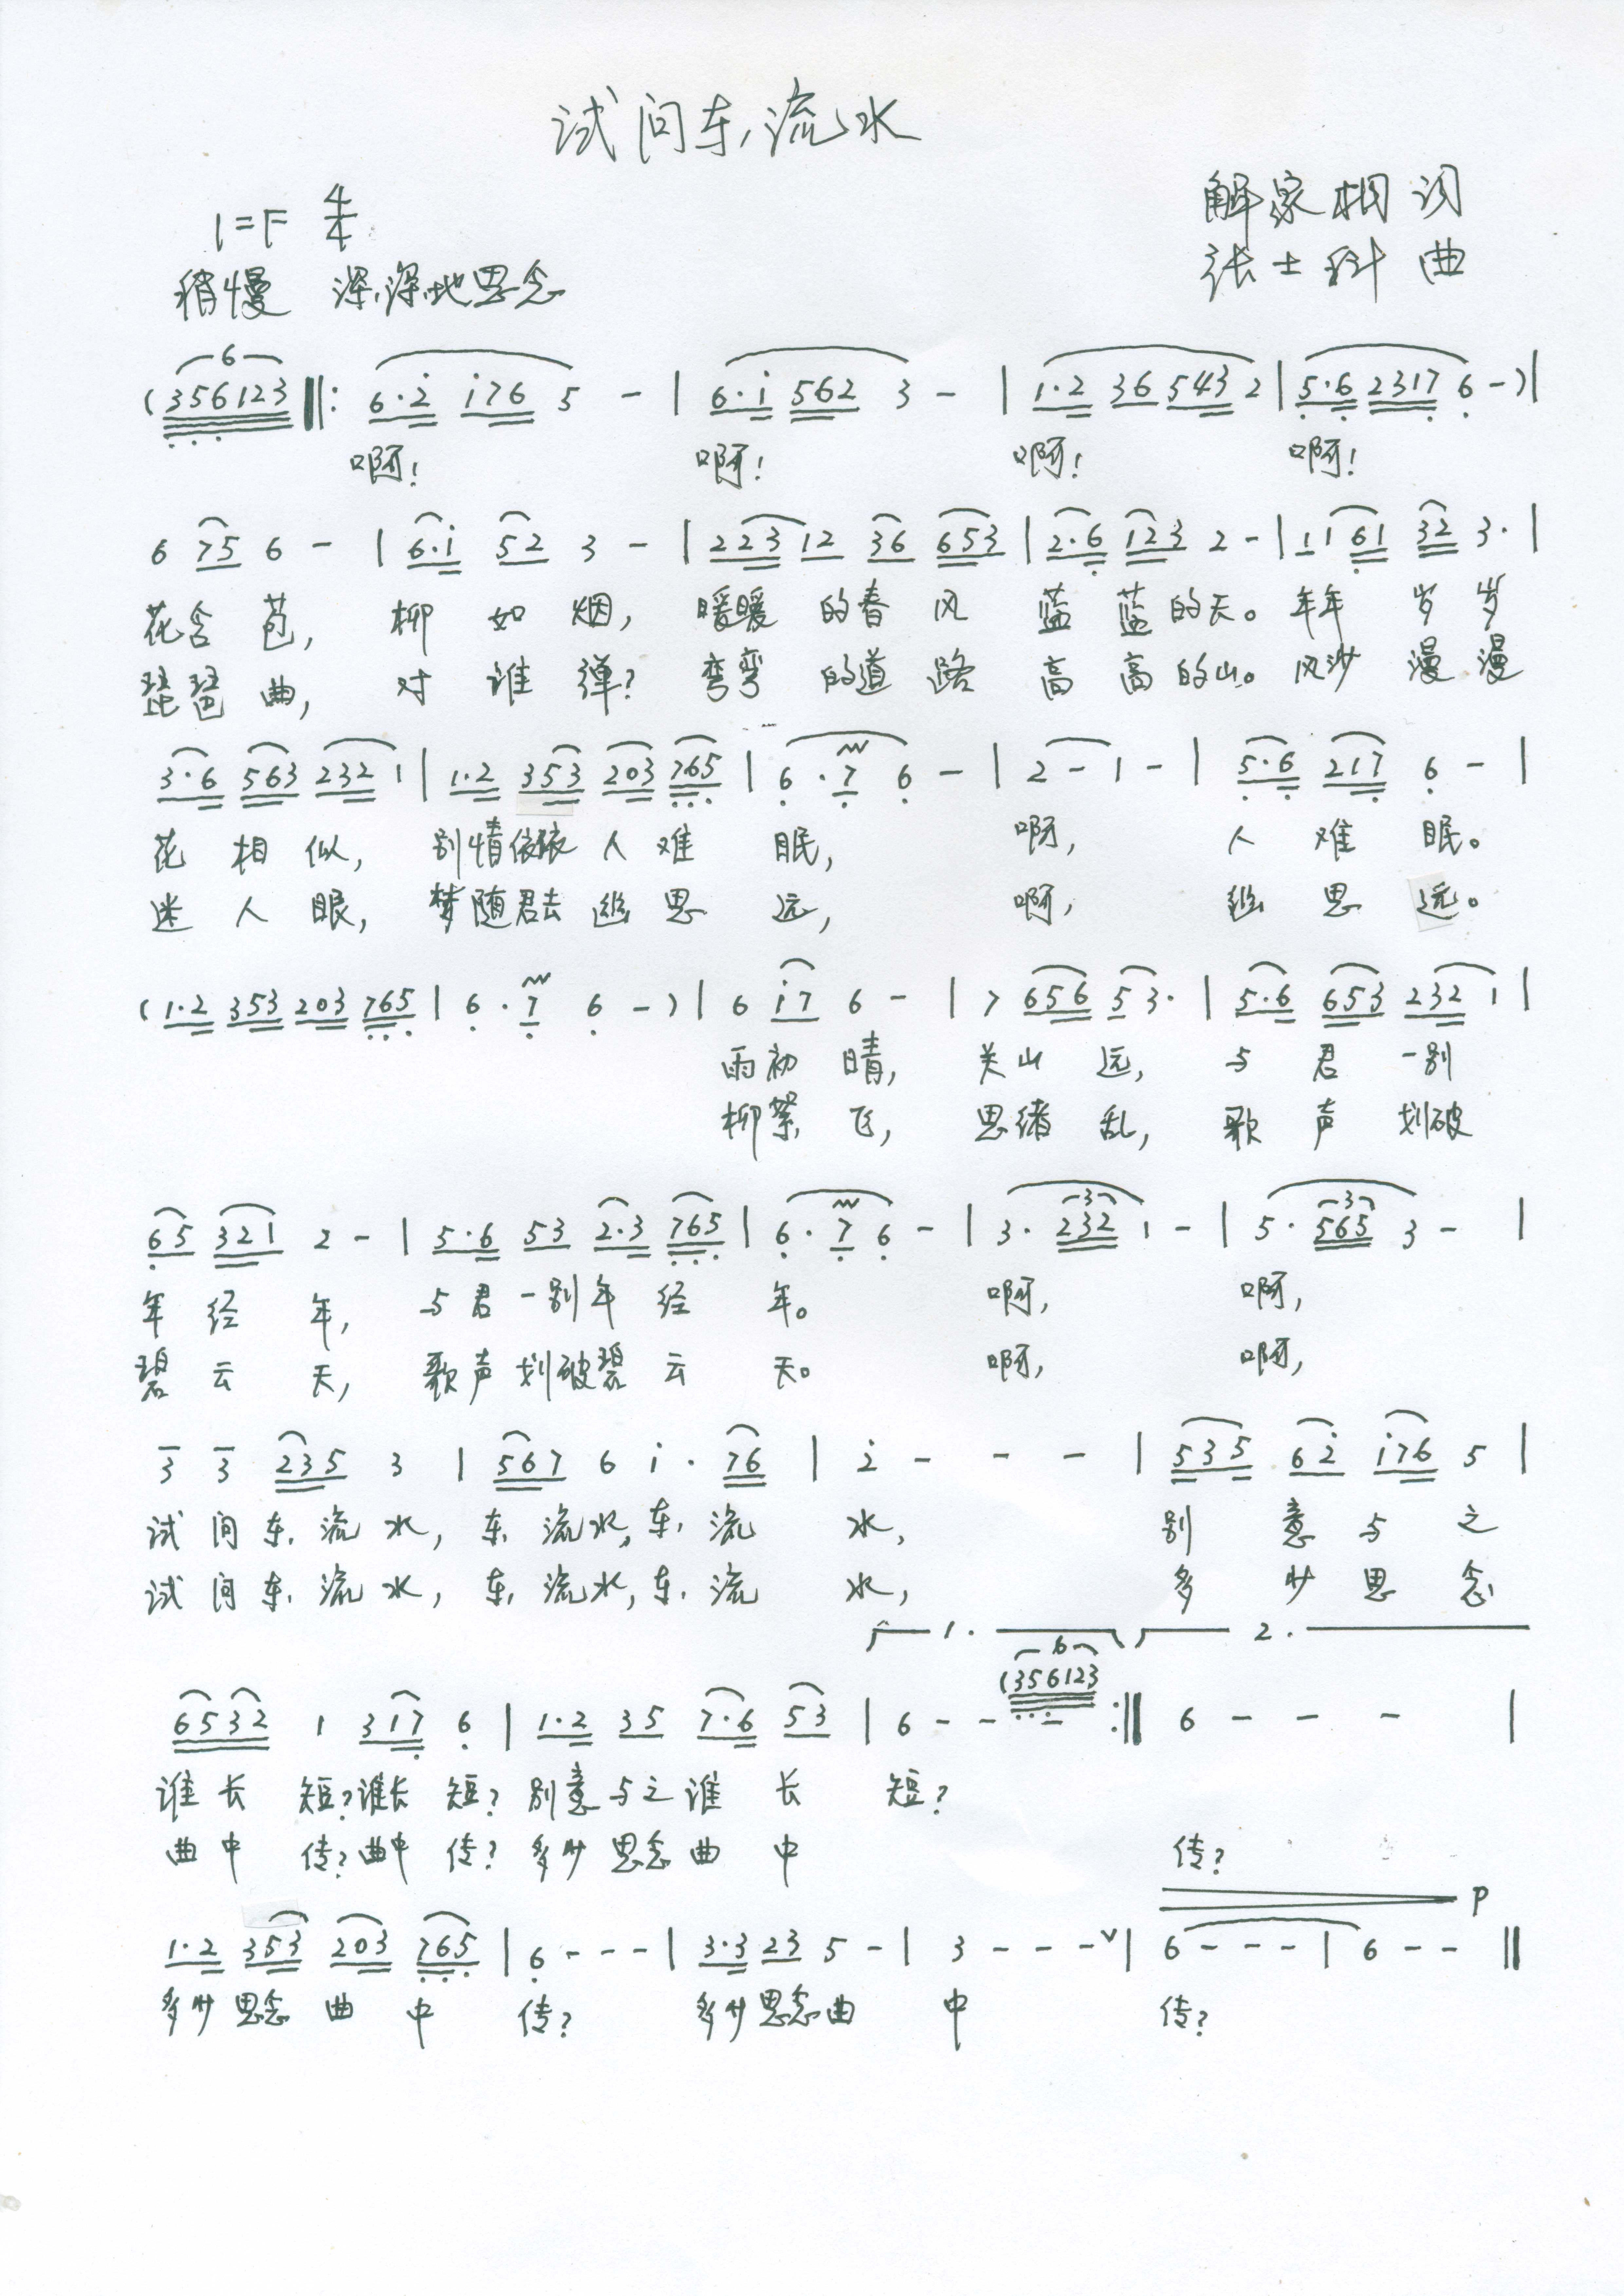 试问东流水
1=F 4/4
解家相 词
稍慢 深深地思念
张士科 曲
(356123 ‖: 6·2̇ i̇76 5 - | 6·i̇ 562 3 - | 1·2 36 543 2 | 5·6 2317 6 -)|
啊! 啊! 啊! 啊!
6 75 6 - | 6·i̇ 52 3 - | 223 12 36 653 | 2·6 123 2 - | 11 61 32 3· |
花含苞, 柳如烟, 暖暖的春风 蓝蓝的天。年年岁岁
琵琶曲, 对谁弹? 弯弯的道路 高高的山。风沙漫漫
3·6 563 232 1 | 1·2 353 203 765 | 6·7 6 - | 2 - 1 - | 5·6 217 6 - |
花相似, 别情依依人难眠, 啊, 人难眠。
迷人眼, 梦随君去幽思远, 啊, 幽思远。
(1·2 353 203 765 | 6·7 6 -)| 6 i̇7 6 - | 7 656 5 3· | 5·6 653 232 1 |
雨初晴, 关山远, 与君一别
柳絮飞, 思绪乱, 歌声划破
65 321 2 - | 5·6 53 2·3 765 | 6·7 6 - | 3· 232 1 - | 5· 565 3 - |
年经年, 与君一别年经年。 啊, 啊,
碧云天, 歌声划破碧云天。 啊, 啊,
3 3 235 3 | 567 6 i̇· 76 | 2̇ - - - | 535 62̇ i̇76 5 |
试问东流水, 东流水,东流水, 别意与之
试问东流水, 东流水,东流水, 多少思念
1. (356123 2.
6532 1 317 6 | 1·2 35 7·6 53 | 6 - - - :‖ 6 - - - |
谁长短?谁长短?别意与之谁长短?
曲中传?曲中传?多少思念曲中 传?
p
1·2 353 203 765 | 6 - - - | 3·3 23 5 - | 3 - - - ∨ | 6 - - - | 6 - - ‖
多少思念曲中传? 多少思念曲中传?